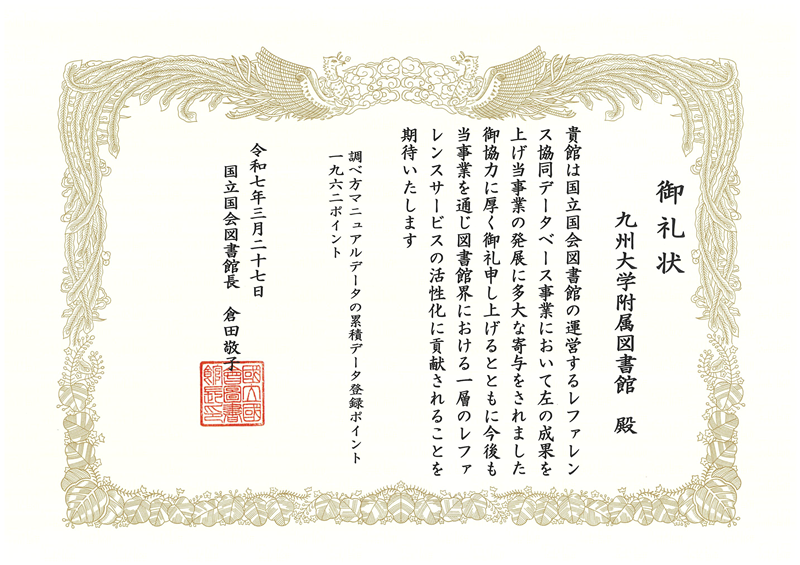 御礼状
九州大学附属図書館 殿
貴館は国立国会図書館の運営するレファレン
ス協同データベース事業において左の成果を
上げ当事業の発展に多大な寄与をされました
御協力に厚く御礼申し上げるとともに今後も
当事業を通じ図書館界における一層のレファ
レンスサービスの活性化に貢献されることを
期待いたします
調べ方マニュアルデータの累積データ登録ポイント
一九六二ポイント
令和七年三月二十七日
国立国会図書館長 倉田敬子
國立國
會圖書
館長印